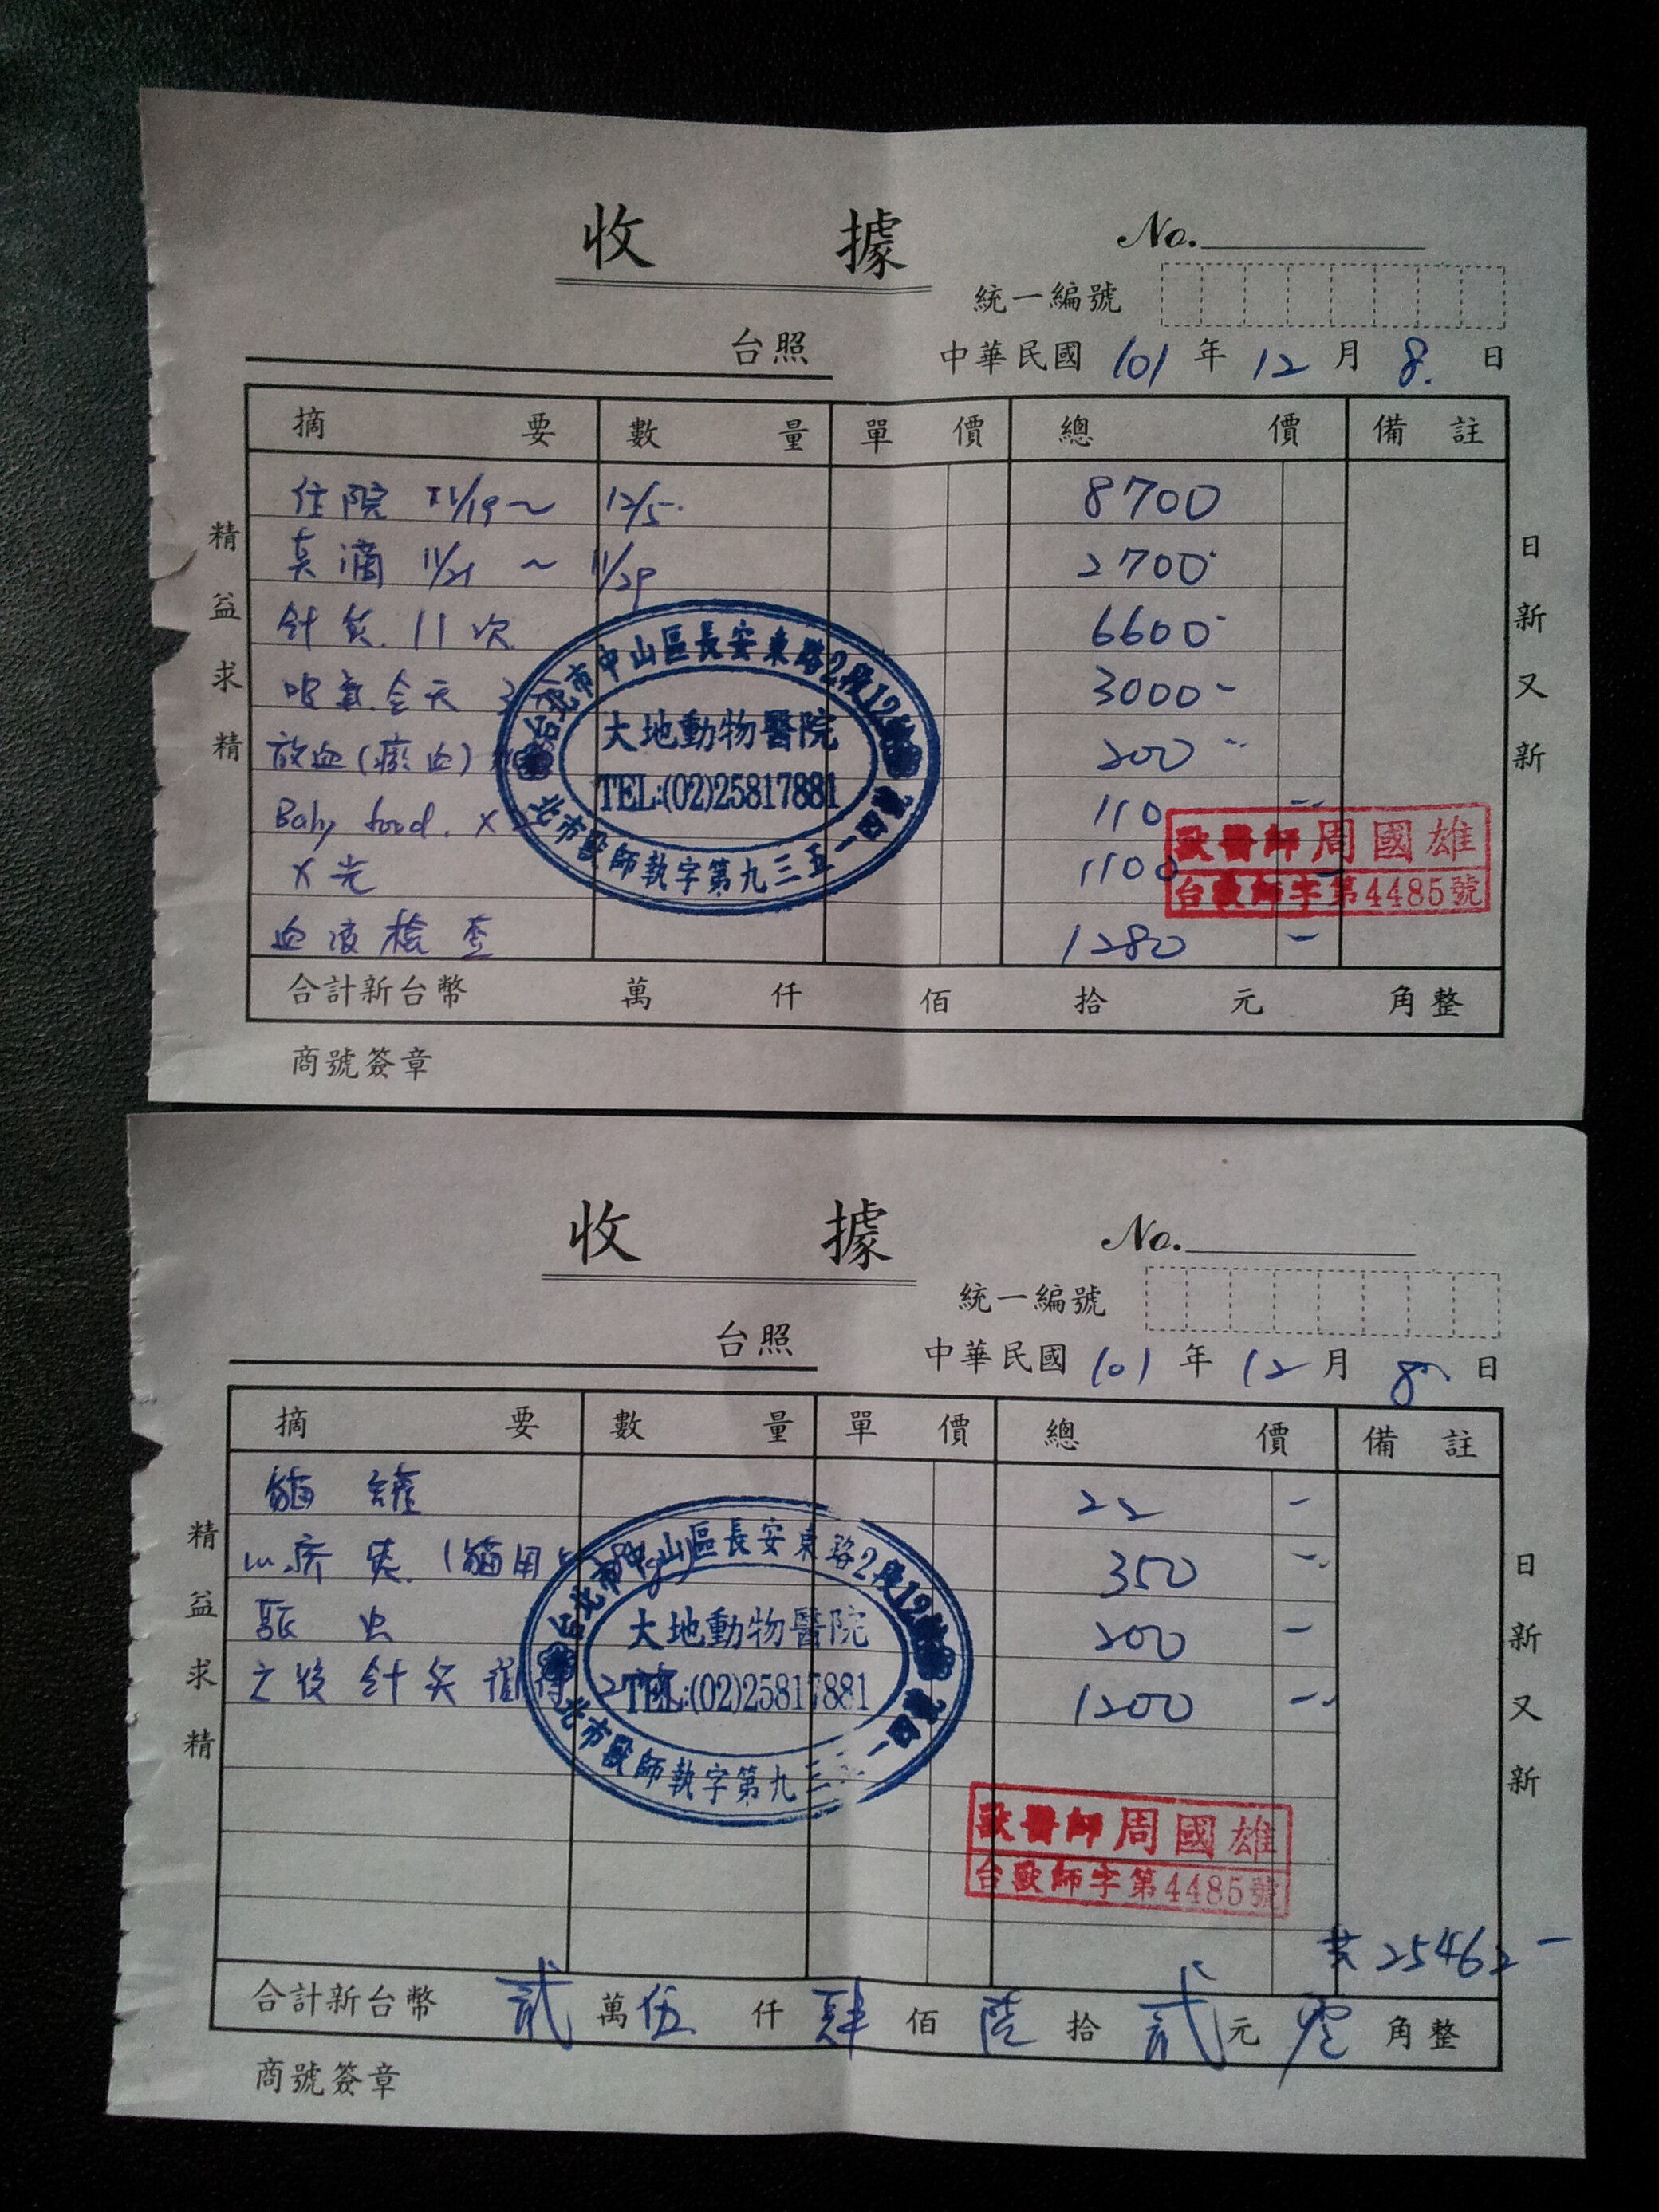 收據
No.
統一編號
台照
中華民國 101 年 12 月 8. 日
摘要 數量 單價 總價 備註
住院 11/19～ 12/5. 8700
点滴 11/21 ～ 11/29 2700
針灸. 11 次 6600
吸氧.全天 3000-
放血(瘀血) 200
Baby food. x 110
X光 1100
血液檢查 1280 -
合計新台幣 萬 仟 佰 拾 元 角整
商號簽章
精益求精
日新又新
台北市中山區長安東路2段
大地動物醫院
TEL:(02)25817881
北市獸師執字第九三五一
獸醫師周國雄
台獸師字第4485號
收據
No.
統一編號
台照
中華民國 101 年 12 月 8 日
摘要 數量 單價 總價 備註
貓罐 22 -
(貓用 350 -
驅虫 200 -
之後針灸 1200 -
共 25462 -
合計新台幣 貳 萬 伍 仟 肆 佰 陸 拾 貳 元 零 角整
商號簽章
精益求精
日新又新
台北市中山區長安東路2段
大地動物醫院
TEL:(02)25817881
北市獸師執字第九三
獸醫師周國雄
台獸師字第4485號